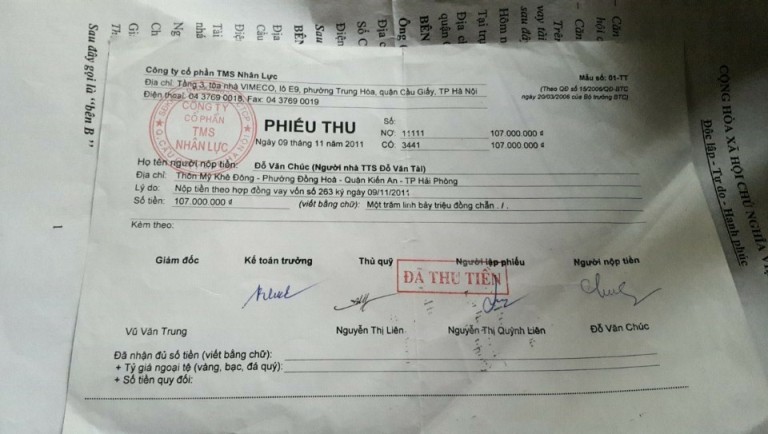 Công ty cổ phần TMS Nhân Lực
Địa chỉ: Tầng 3, tòa nhà VIMECO, lô E9, phường Trung Hòa, quận Cầu Giấy, TP Hà Nội
Điện thoại: 04 3769 0018, Fax: 04 3769 0019
Mẫu số: 01-TT
(Theo QĐ số 15/2006/QĐ-BTC
ngày 20/03/2006 của Bộ trưởng BTC)
CÔNG TY
CỔ PHẦN
TMS
NHÂN LỰC
PHIẾU THU
Ngày 09 tháng 11 năm 2011
Số:
NỢ: 11111 107.000.000 đ
CÓ: 3441 107.000.000 đ
Họ tên người nộp tiền: Đỗ Văn Chúc (Người nhà TTS Đỗ Văn Tài)
Địa chỉ: Thôn Mỹ Khê Đông - Phường Đồng Hoà - Quận Kiến An - TP Hải Phòng
Lý do: Nộp tiền theo hợp đồng vay vốn số 263 ký ngày 09/11/2011
Số tiền: 107.000.000 đ (viết bằng chữ): Một trăm linh bảy triệu đồng chẵn ./.
Kèm theo:
Giám đốc Kế toán trưởng Thủ quỹ Người lập phiếu Người nộp tiền
ĐÃ THU TIỀN
Vũ Văn Trung Nguyễn Thị Liên Nguyễn Thị Quỳnh Liên Đỗ Văn Chúc
Đã nhận đủ số tiền (viết bằng chữ):
+ Tỷ giá ngoại tệ (vàng, bạc, đá quý):
+ Số tiền quy đổi:
CỘNG HÒA XÃ HỘI CHỦ NGHĨA
Độc lập - Tự do - Hạnh phúc
Sau đây gọi là "bên B"
1